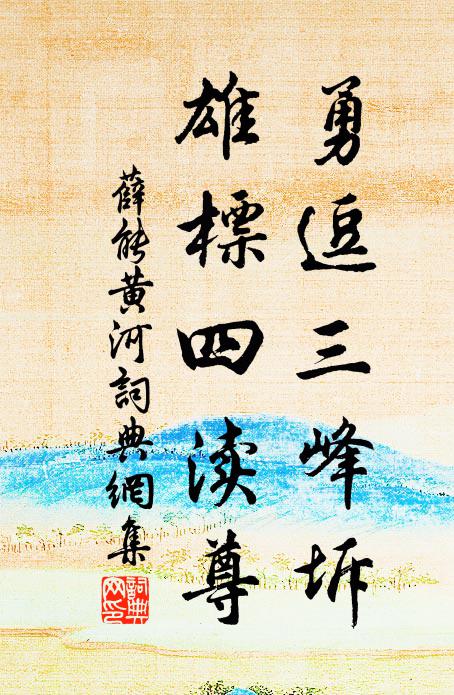 勇逗三峰坼
雄標四渎尊
薛能黄河詞典網集